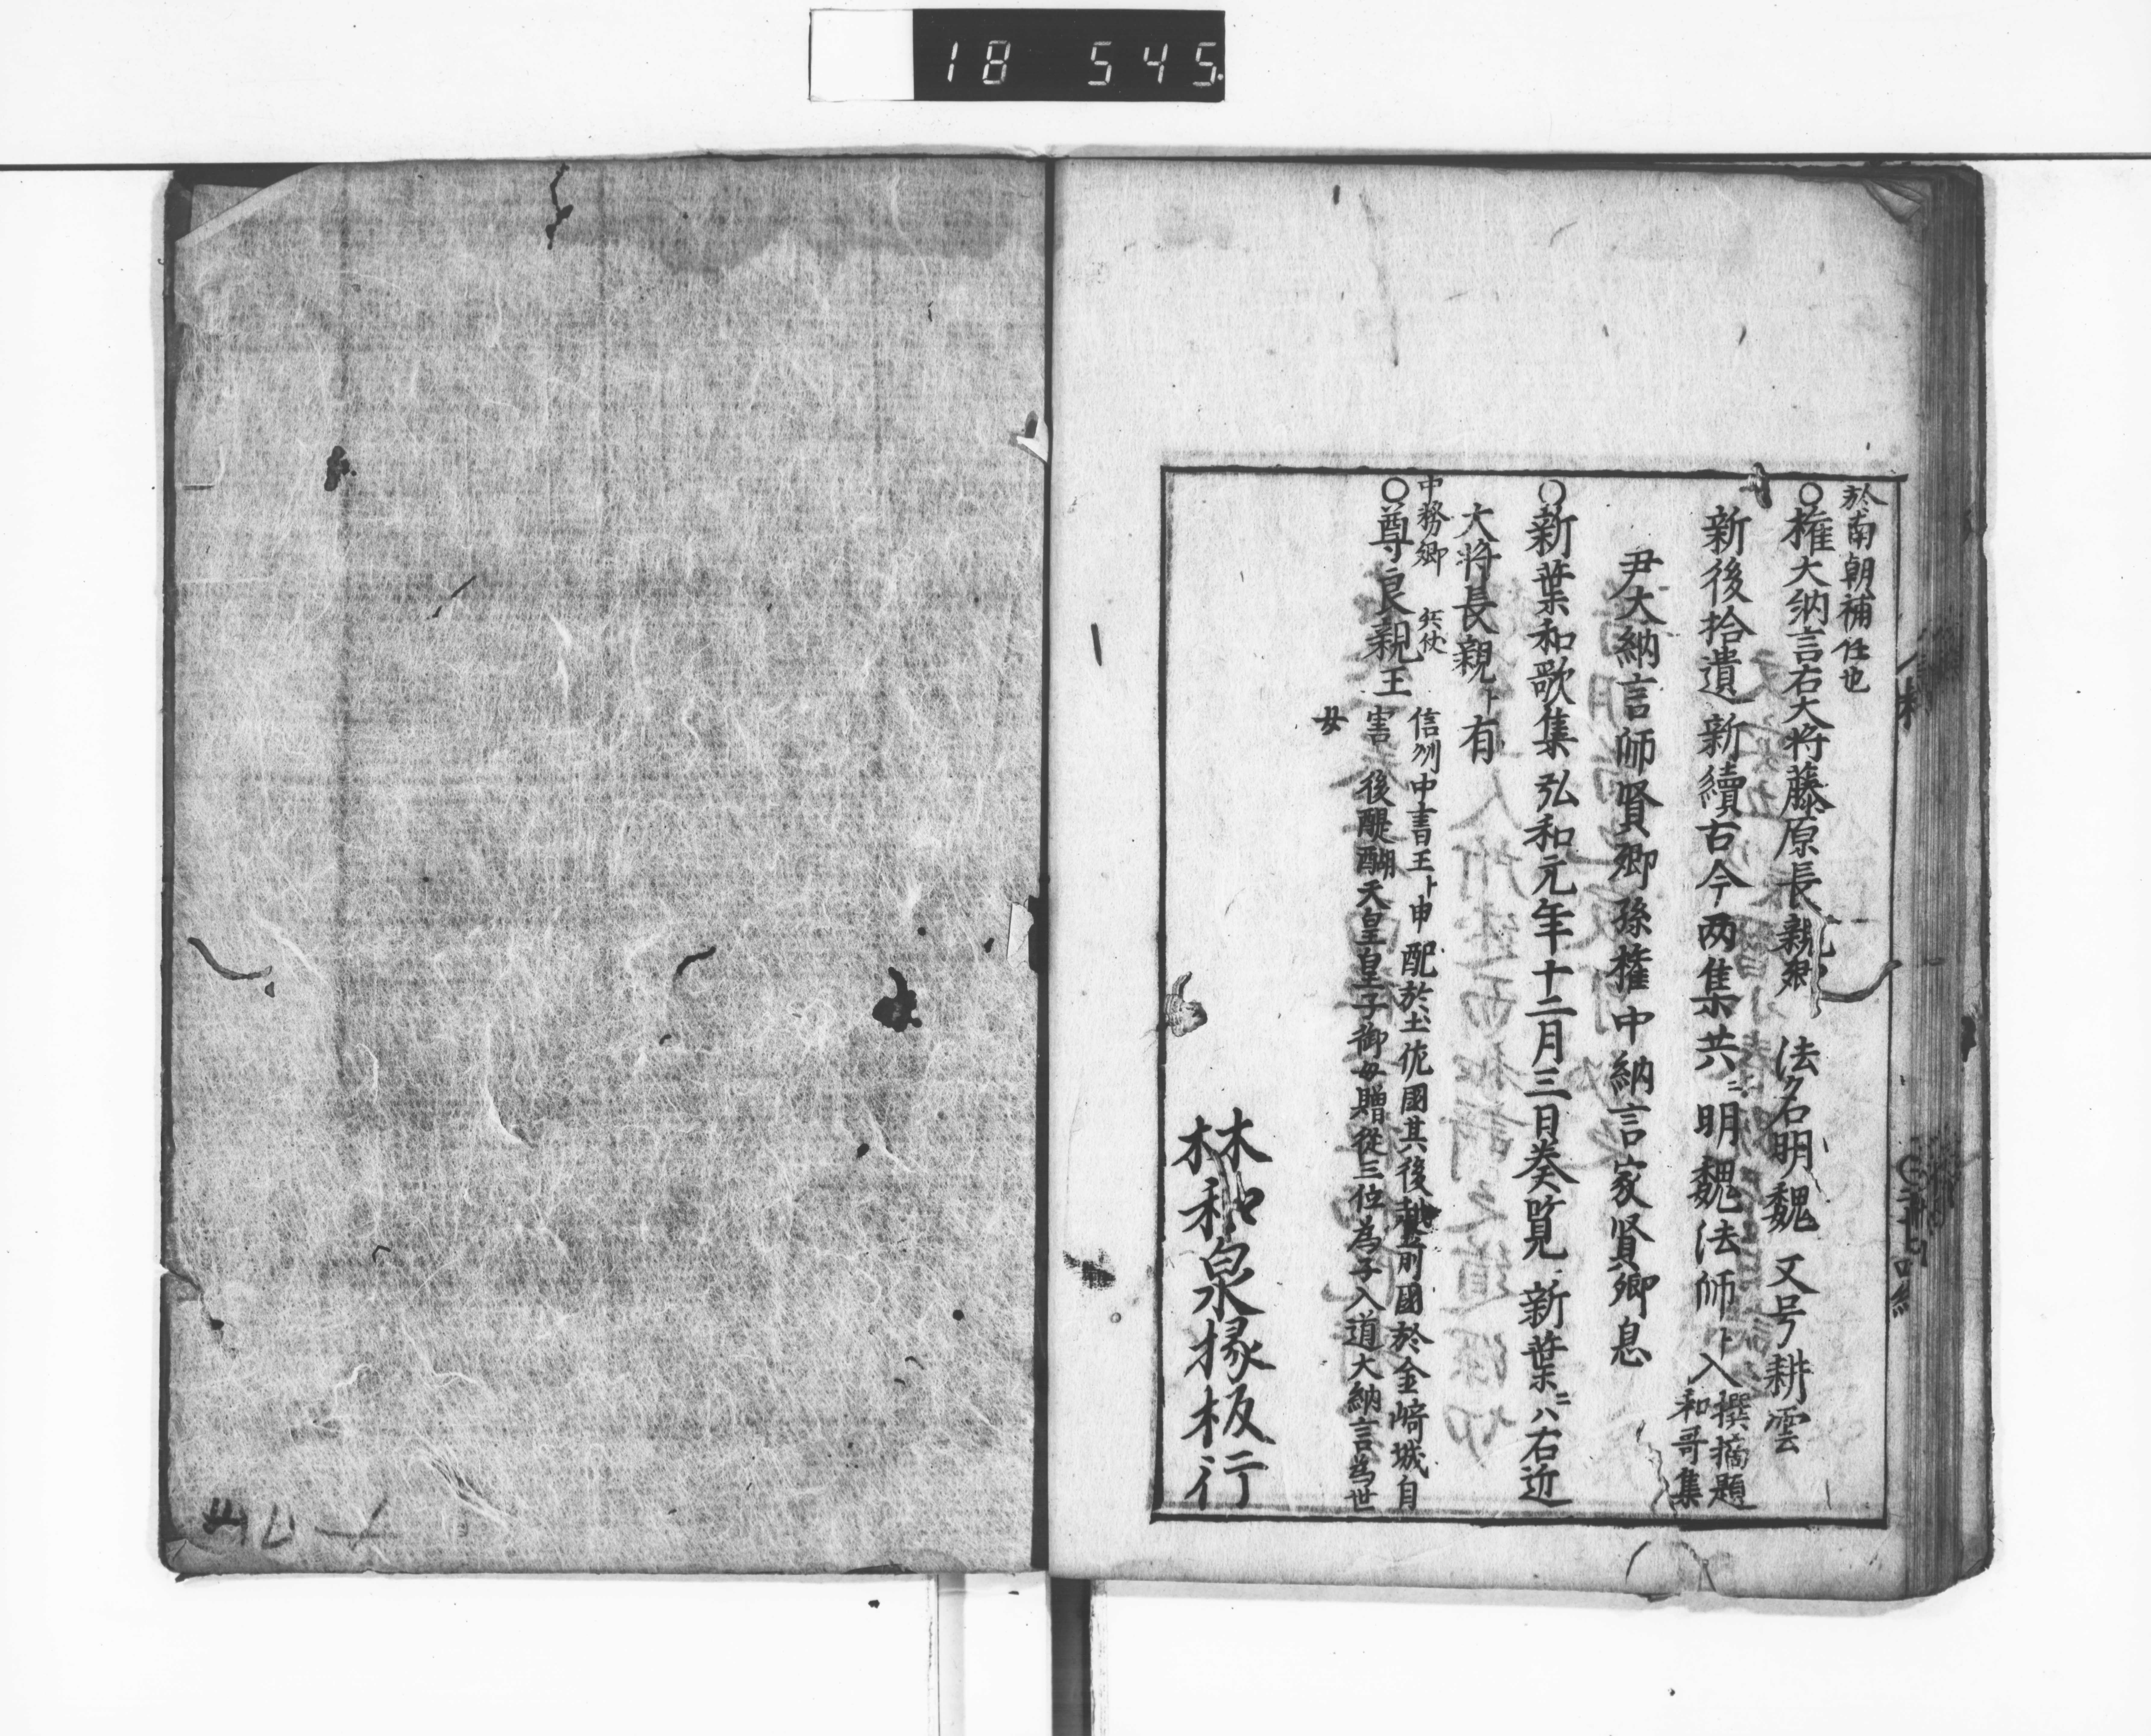 18 545
於南朝補任也
○権大納言右大将藤原長親卿 法名明魏 又号耕雲
新後拾遺新續古今两集共ニ明魏法師ト入撰摘題
和哥集
尹大納言師賢卿孫権中納言家賢卿息
○新葉和歌集弘和元年十二月三日奏覧 新葉ニハ右近
大将長親ト有
中務卿
○尊良親王
信刕中書王ト申配於土佐國其後越前國於金崎城自
害 後醍醐天皇皇子御母贈從三位為子入道大納言為世
女
林和泉掾板行